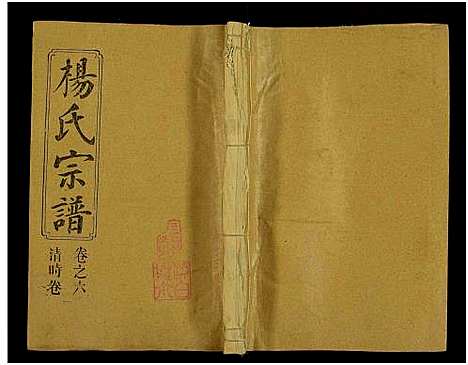 楊氏宗譜
卷之六
清時卷